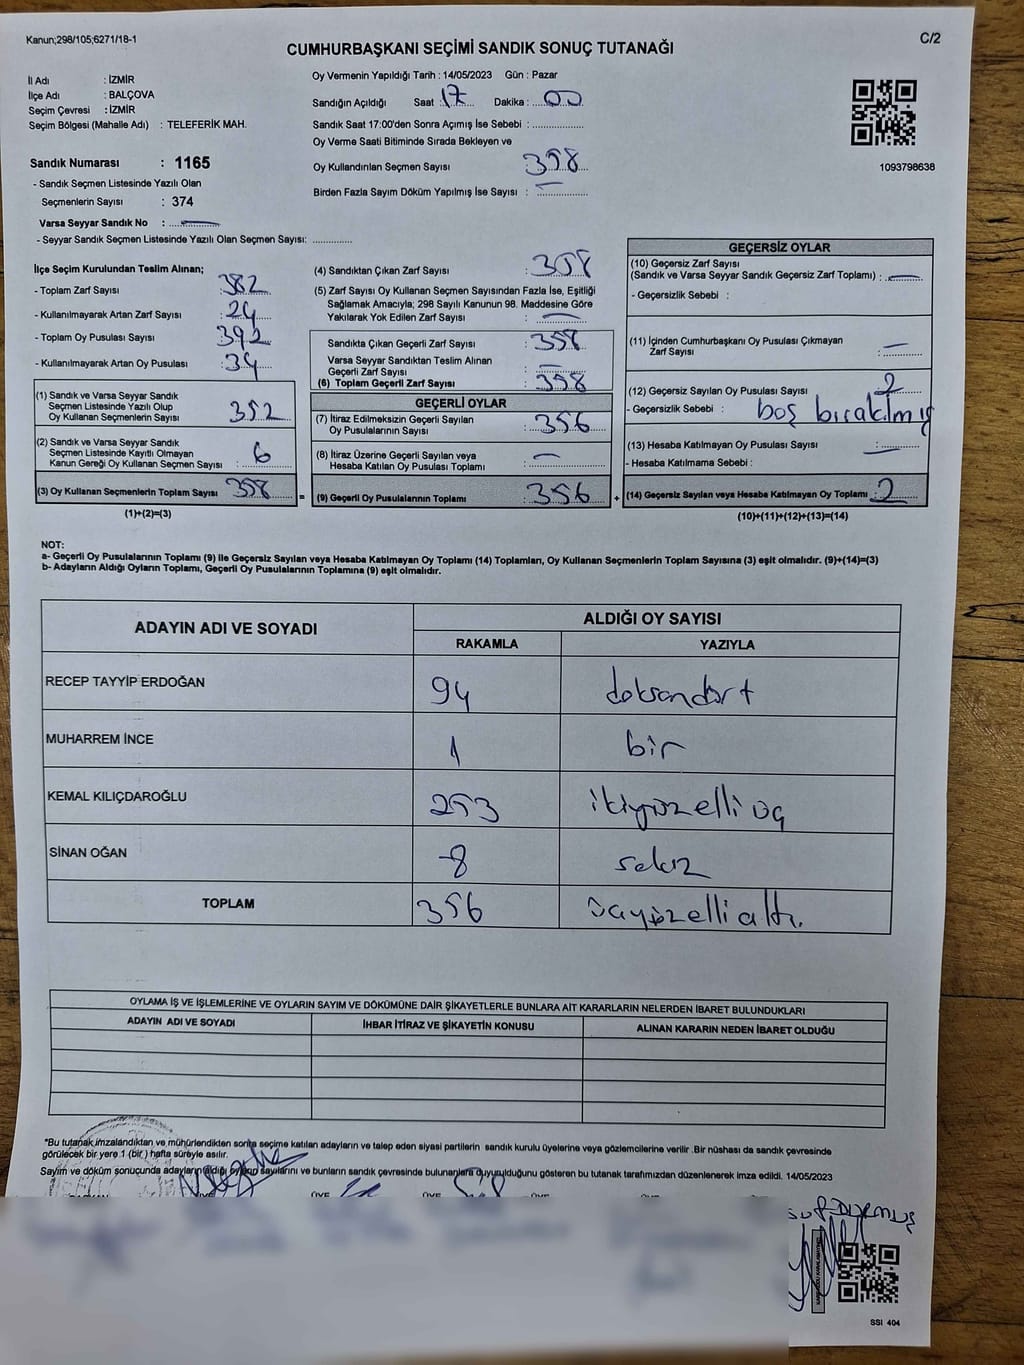 Kanun;298/105;6271/18-1
C/2
CUMHURBAŞKANI SEÇİMİ SANDIK SONUÇ TUTANAĞI
İl Adı : İZMİR
İlçe Adı : BALÇOVA
Seçim Çevresi : İZMİR
Seçim Bölgesi (Mahalle Adı) : TELEFERİK MAH.
Sandık Numarası : 1165
- Sandık Seçmen Listesinde Yazılı Olan
Seçmenlerin Sayısı : 374
Varsa Seyyar Sandık No :
- Seyyar Sandık Seçmen Listesinde Yazılı Olan Seçmen Sayısı:
Oy Vermenin Yapıldığı Tarih : 14/05/2023 Gün : Pazar
Sandığın Açıldığı Saat : 17 Dakika : 00
Sandık Saat 17:00'den Sonra Açımış İse Sebebi :
Oy Verme Saati Bitiminde Sırada Bekleyen ve
Oy Kullandırılan Seçmen Sayısı : 358
Birden Fazla Sayım Döküm Yapılmış İse Sayısı : —
1093798638
İlçe Seçim Kurulundan Teslim Alınan;
- Toplam Zarf Sayısı : 382
- Kullanılmayarak Artan Zarf Sayısı : 24
- Toplam Oy Pusulası Sayısı : 392
- Kullanılmayarak Artan Oy Pusulası : 34
(1) Sandık ve Varsa Seyyar Sandık
Seçmen Listesinde Yazılı Olup
Oy Kullanan Seçmenlerin Sayısı : 352
(2) Sandık ve Varsa Seyyar Sandık
Seçmen Listesinde Kayıtlı Olmayan
Kanun Gereği Oy Kullanan Seçmen Sayısı : 6
(3) Oy Kullanan Seçmenlerin Toplam Sayısı : 358
(1)+(2)=(3)
(4) Sandıktan Çıkan Zarf Sayısı : 358
(5) Zarf Sayısı Oy Kullanan Seçmen Sayısından Fazla İse, Eşitliği
Sağlamak Amacıyla; 298 Sayılı Kanunun 98. Maddesine Göre
Yakılarak Yok Edilen Zarf Sayısı : —
Sandıkta Çıkan Geçerli Zarf Sayısı : 358
Varsa Seyyar Sandıktan Teslim Alınan
Geçerli Zarf Sayısı : —
(6) Toplam Geçerli Zarf Sayısı : 358
GEÇERLİ OYLAR
(7) İtiraz Edilmeksizin Geçerli Sayılan
Oy Pusulalarının Sayısı : 356
(8) İtiraz Üzerine Geçerli Sayılan veya
Hesaba Katılan Oy Pusulası Toplamı : —
= (9) Geçerli Oy Pusulalarının Toplamı : 356 +
GEÇERSİZ OYLAR
(10) Geçersiz Zarf Sayısı
(Sandık ve Varsa Seyyar Sandık Geçersiz Zarf Toplamı) : —
- Geçersizlik Sebebi :
(11) İçinden Cumhurbaşkanı Oy Pusulası Çıkmayan
Zarf Sayısı : —
(12) Geçersiz Sayılan Oy Pusulası Sayısı : 2
- Geçersizlik Sebebi : boş bırakılmış
(13) Hesaba Katılmayan Oy Pusulası Sayısı : —
- Hesaba Katılmama Sebebi :
(14) Geçersiz Sayılan veya Hesaba Katılmayan Oy Toplamı : 2
(10)+(11)+(12)+(13)=(14)
NOT:
a- Geçerli Oy Pusulalarının Toplamı (9) ile Geçersiz Sayılan veya Hesaba Katılmayan Oy Toplamı (14) Toplamları, Oy Kullanan Seçmenlerin Toplam Sayısına (3) eşit olmalıdır. (9)+(14)=(3)
b- Adayların Aldığı Oyların Toplamı, Geçerli Oy Pusulalarının Toplamına (9) eşit olmalıdır.
ADAYIN ADI VE SOYADI ALDIĞI OY SAYISI
RAKAMLA YAZIYLA
RECEP TAYYİP ERDOĞAN 94 doksandört
MUHARREM İNCE 1 bir
KEMAL KILIÇDAROĞLU 253 ikiyüzelli üç
SİNAN OĞAN 8 sekiz
TOPLAM 356 üçyüzelli altı.
OYLAMA İŞ VE İŞLEMLERİNE VE OYLARIN SAYIM VE DÖKÜMÜNE DAİR ŞİKAYETLERLE BUNLARA AİT KARARLARIN NELERDEN İBARET BULUNDUKLARI
ADAYIN ADI VE SOYADI İHBAR İTİRAZ VE ŞİKAYETİN KONUSU ALINAN KARARIN NEDEN İBARET OLDUĞU
*Bu tutanak imzalandıktan ve mühürlendikten sonra seçime katılan adayların ve talep eden siyasi partilerin sandık kurulu üyelerine veya gözlemcilerine verilir .Bir nüshası da sandık çevresinde
görülecek bir yere 1 (bir ) hafta süreyle asılır.
Sayım ve döküm sonucunda adayların aldığı oyların sayılarını ve bunların sandık çevresinde bulunanlara duyurulduğunu gösteren bu tutanak tarafımızdan düzenlenerek imza edildi. 14/05/2023
ÜYE ÜYE ÜYE
SSI 404